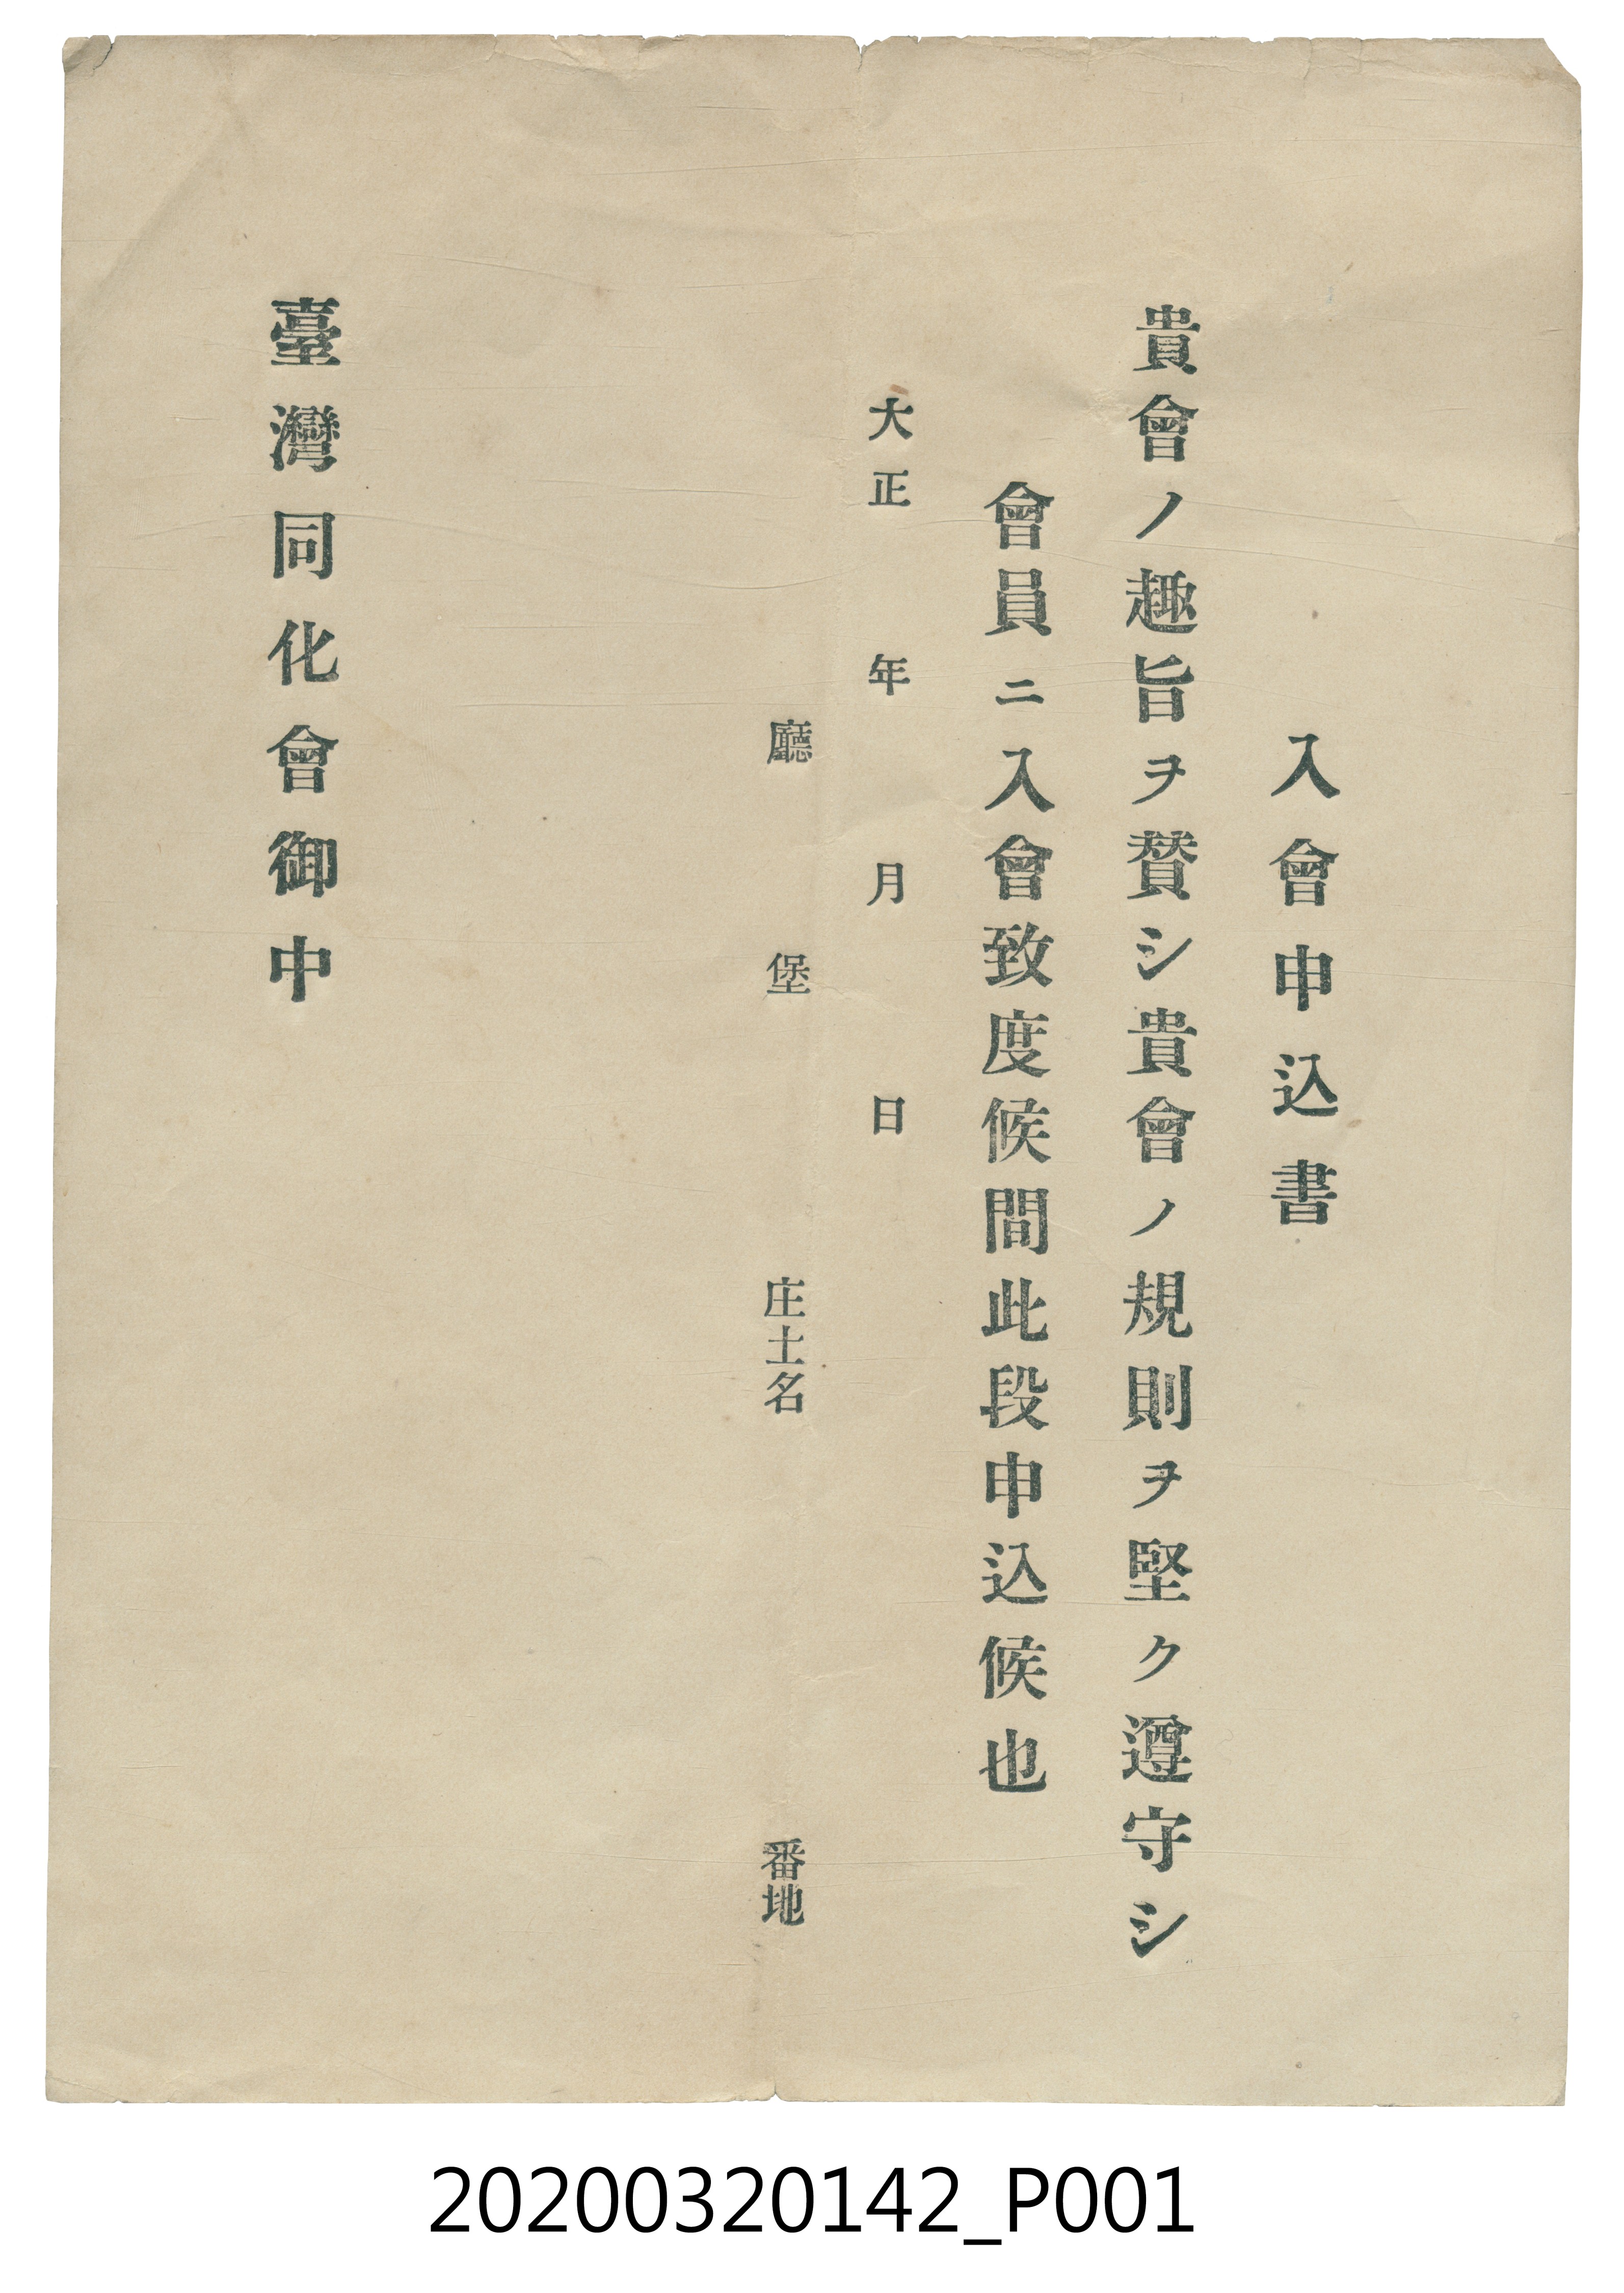 入會申込書
貴會ノ趣旨ヲ賛シ貴會ノ規則ヲ堅ク遵守シ
會員ニ入會致度候間此段申込候也
大正　年　月　日
廳　堡　庄土名　番地
臺灣同化會御中
20200320142_P001